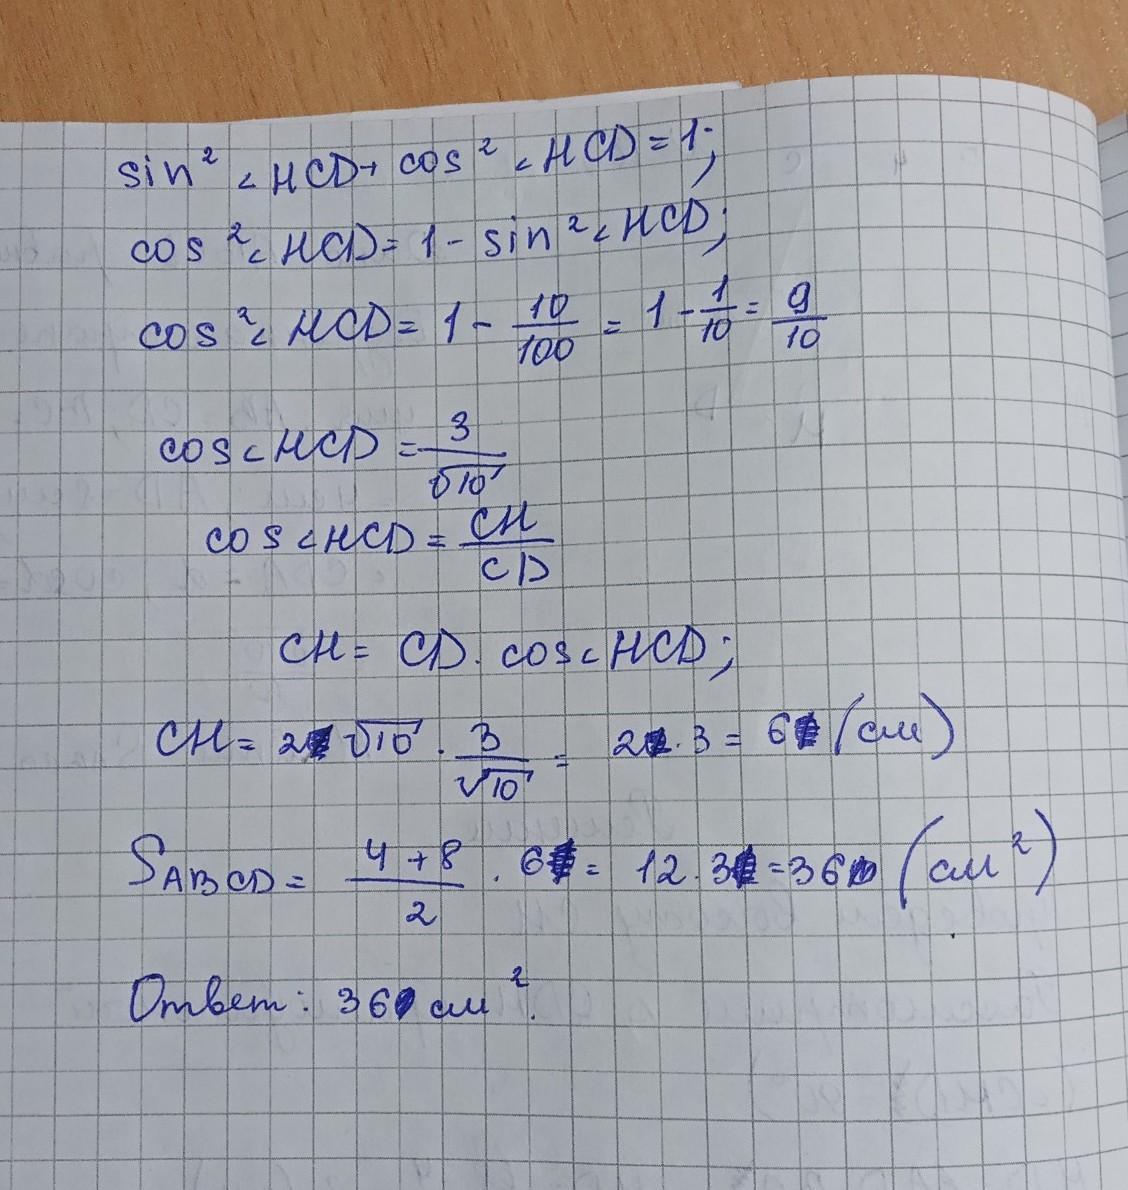 sin² ∠HCD + cos² ∠HCD = 1;
cos² ∠HCD = 1 - sin² ∠HCD;
cos² ∠HCD = 1 - 10/100 = 1 - 1/10 = 9/10
cos ∠HCD = 3/√10
cos ∠HCD = CH/CD
CH = CD · cos ∠HCD;
CH = 2√10 · 3/√10 = 2 · 3 = 6 (см)
S ABCD = (4 + 8)/2 · 6 = 12 · 3 = 36 (см²)
Ответ: 36 см².